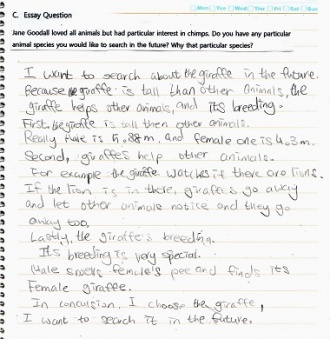 □Mon □Tue □Wed □Thu □Fri □Sat □Sun
C. Essay Question
Jane Goodall loved all animals but had particular interest in chimps. Do you have any particular
animal species you would like to search in the future? Why that particular species?
I want to search about the giraffe in the future.
Because giraffe is tall than other animals, the
giraffe helps other animals, and its breeding.
First, the giraffe is tall then other animals.
Really male is 5.88m, and female one is 4.3m.
Second, giraffes help other animals.
For example the giraffe watches if there are lions.
If the lion is in there, giraffes go away
and let other animals notice and they go
away too.
Lastly, the giraffe's breeding.
Its breeding is very special.
Male smells female's pee and finds its
Female giraffe.
In concusion, I choose the giraffe,
I want to search it in the future.